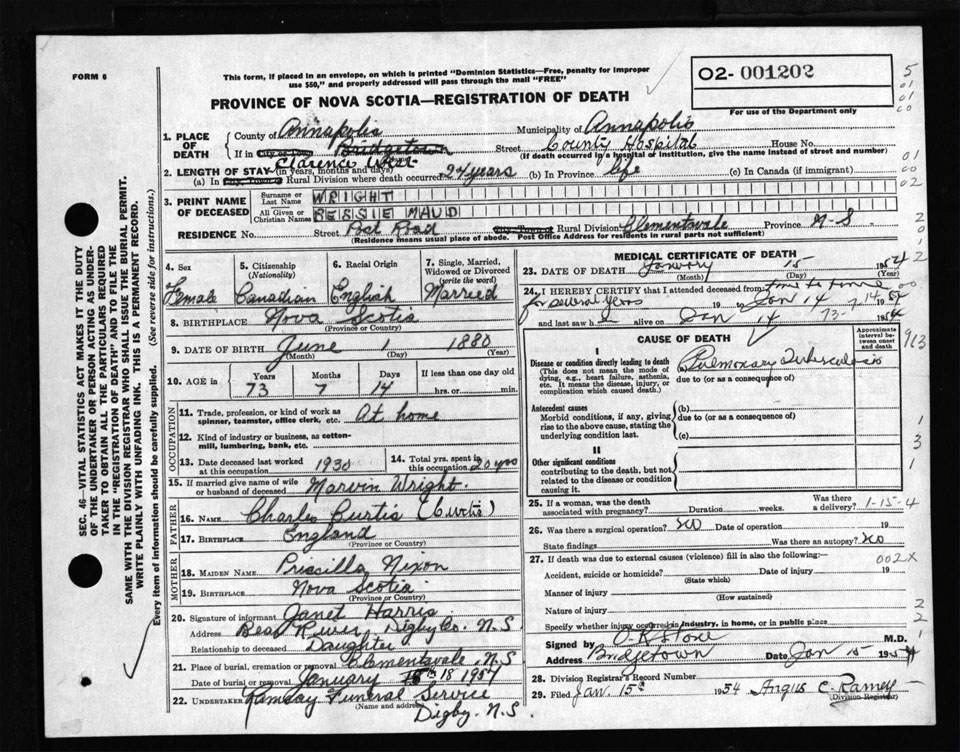 FORM 6
This form, if placed in an envelope, on which is printed "Dominion Statistics—Free, penalty for improper
use $50," and properly addressed will pass through the mail "FREE"
02-001202
For use of the Department only
PROVINCE OF NOVA SCOTIA—REGISTRATION OF DEATH
1. PLACE OF DEATH
County of Annapolis Municipality of Annapolis
If in City or Town Bridgetown Street County Hospital House No.
(If death occurred in a hospital or institution, give the name instead of street and number)
Clarence West
2. LENGTH OF STAY (in years, months and days)
(a) In City, Town or Rural Division where death occurred 24 years (b) In Province life (c) In Canada (if immigrant)
3. PRINT NAME OF DECEASED
Surname or Last Name WRIGHT
All Given or Christian Names BESSIE MAUD
RESIDENCE No. Street Post Road City, Town or Rural Division Clementsvale Province N-S
(Residence means usual place of abode. Post Office Address for residents in rural parts not sufficient)
4. Sex Female
5. Citizenship (Nationality) Canadian
6. Racial Origin English
7. Single, Married, Widowed or Divorced (write the word) Married
8. BIRTHPLACE Nova Scotia
(Province or Country)
9. DATE OF BIRTH June 1 1880
(Month) (Day) (Year)
10. AGE in Years 73 Months 7 Days 14 If less than one day old hrs. or min.
OCCUPATION
11. Trade, profession, or kind of work as spinner, teamster, office clerk, etc. At home
12. Kind of industry or business, as cotton-mill, lumbering, bank, etc.
13. Date deceased last worked at this occupation 1930
14. Total yrs. spent in this occupation 20 yrs
15. If married give name of wife or husband of deceased Marvin Wright.
FATHER
16. NAME Charles Curtis (Curtis)
17. BIRTHPLACE England
(Province or Country)
MOTHER
18. MAIDEN NAME Priscilla Nixon
19. BIRTHPLACE Nova Scotia
(Province or Country)
20. Signature of informant Janet Harris
Address Bear River, Digby Co. N.S.
Relationship to deceased Daughter
21. Place of burial, cremation or removal Clementsvale, N.S
Date of burial or removal January 18 1954
22. UNDERTAKER Ramsay Funeral Service
(Name and address)
Digby. N.S.
MEDICAL CERTIFICATE OF DEATH
23. DATE OF DEATH January 15 1954
(Month) (Day) (Year)
24. I HEREBY CERTIFY that I attended deceased from time to time
for several years 19 to Jan 14 1954
and last saw h alive on Jan 14 1954
CAUSE OF DEATH
Approximate interval between onset and death
I
Disease or condition directly leading to death
(This does not mean the mode of dying, e.g., heart failure, asthenia, etc. It means the disease, injury, or complication which caused death.)
Pulmonary Tuberculosis
due to (or as a consequence of)
Antecedent causes
Morbid conditions, if any, giving rise to the above cause, stating the underlying condition last.
(b)
due to (or as a consequence of)
(c)
II
Other significant conditions
contributing to the death, but not related to the disease or condition causing it.
25. If a woman, was the death associated with pregnancy? Duration weeks. Was there a delivery? 1-15-4
26. Was there a surgical operation? No Date of operation 19
State findings Was there an autopsy? No
27. If death was due to external causes (violence) fill in also the following:—
002X
Accident, suicide or homicide? Date of injury 19
(State which)
Manner of injury
(How sustained)
Nature of injury
Specify whether injury occurred in industry, in home, or in public place
Signed by O. R. Stone M.D.
Address Bridgetown Date Jan 15 1954
28. Division Registrar's Record Number
29. Filed Jan. 15th 1954 Angus C. Ramey
(Division Registrar)
SEC. 46—VITAL STATISTICS ACT MAKES IT THE DUTY
OF THE UNDERTAKER OR PERSON ACTING AS UNDER-
TAKER TO OBTAIN ALL THE PARTICULARS REQUIRED
IN THE "REGISTRATION OF DEATH" AND TO FILE THE
SAME WITH THE DIVISION REGISTRAR WHO SHALL ISSUE THE BURIAL PERMIT.
WRITE PLAINLY WITH UNFADING INK. THIS IS A PERMANENT RECORD.
Every item of information should be carefully supplied. (See reverse side for instructions.)